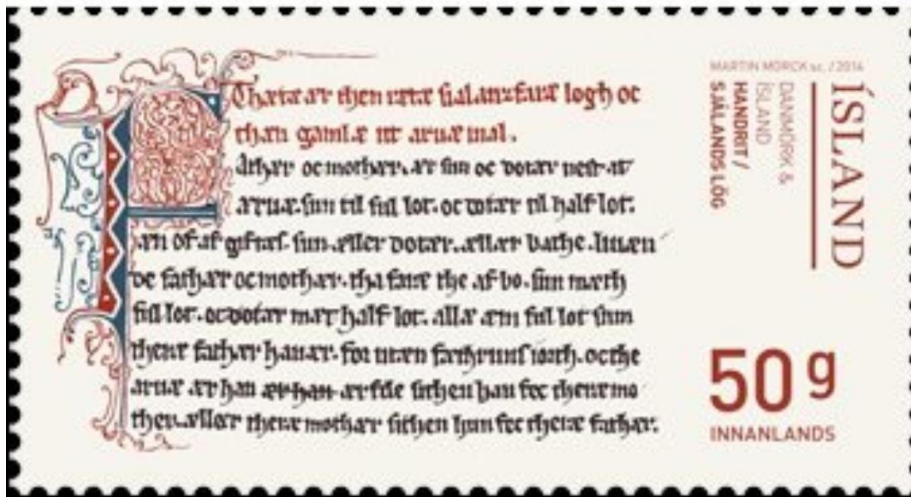 Thætæ ær then rætæ sialanzfaræ logh oc
than gamlæ nt aruæ mal.
athær oc mothær. ær sun oc dotær nest at
aruæ. sun til ful lot. oc dotær til half lot.
æn of af giftæs. sun. æller dotær. ællær bathe. liuæn
de fathær oc mothær. tha faræ the af bo. sun mæth
ful lot. oc dotær mæt half lot. allæ æm ful lot sum
theræ fathær hauær. for utæn fæthruns iorth. oc the
aruæ ær han ær han ærfde sithen han fec theræ mo
ther. æller theræ mothær sithen hun fec theræ fathær.
MARTIN MÖRCK sc. / 2014
ÍSLAND
DANMÖRK &
ÍSLAND
HANDRIT /
SJÁLANDS LÖG
50g
INNANLANDS